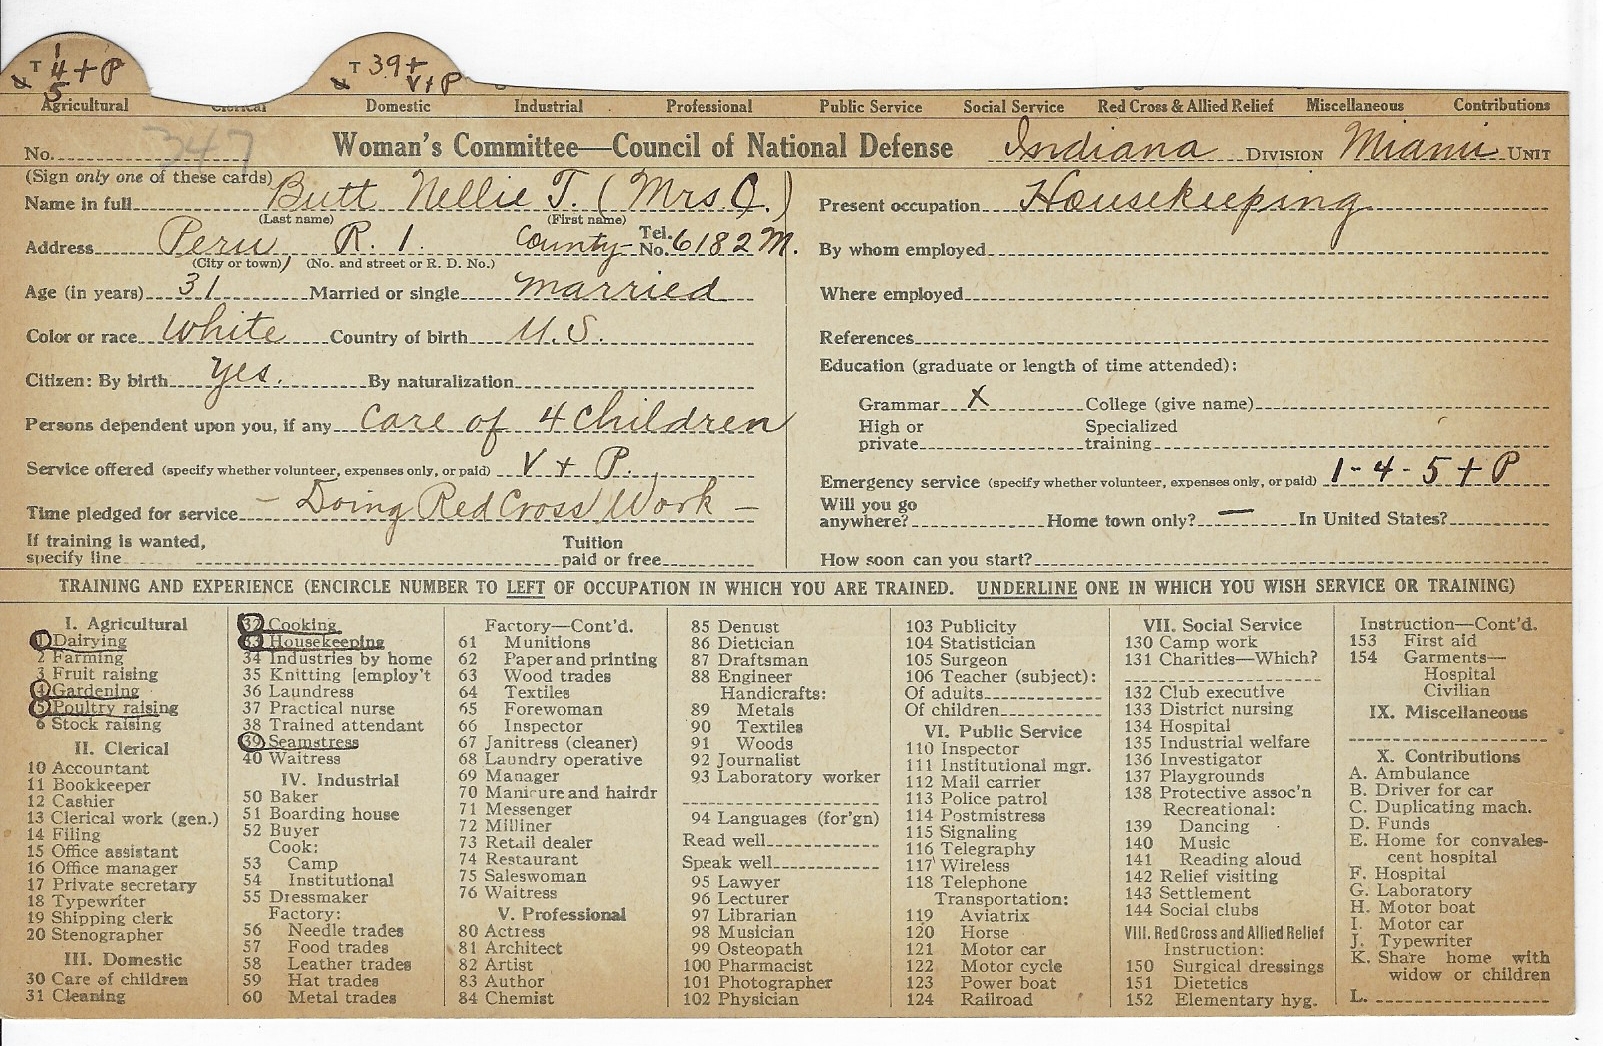 T 1 4 + P 5
T 39 + V + P
Agricultural Clerical Domestic Industrial Professional Public Service Social Service Red Cross & Allied Relief Miscellaneous Contributions
No. 347 Woman's Committee—Council of National Defense Indiana DIVISION Miami UNIT
(Sign only one of these cards)
Name in full Butt Nellie T. (Mrs. C.)
(Last name) (First name)
Address Peru, R. 1. County Tel. No. 6182 M.
(City or town) (No. and street or R. D. No.)
Age (in years) 31 Married or single married
Color or race White Country of birth U.S.
Citizen: By birth yes. By naturalization
Persons dependent upon you, if any Care of 4 Children
Service offered (specify whether volunteer, expenses only, or paid) V + P.
Time pledged for service – Doing Red Cross Work –
If training is wanted, specify line Tuition paid or free
Present occupation Housekeeping
By whom employed
Where employed
References
Education (graduate or length of time attended):
Grammar X College (give name)
High or private Specialized training
Emergency service (specify whether volunteer, expenses only, or paid) 1-4-5 + P
Will you go anywhere? Home town only? — In United States?
How soon can you start?
TRAINING AND EXPERIENCE (ENCIRCLE NUMBER TO LEFT OF OCCUPATION IN WHICH YOU ARE TRAINED. UNDERLINE ONE IN WHICH YOU WISH SERVICE OR TRAINING)
I. Agricultural
1 Dairying
2 Farming
3 Fruit raising
4 Gardening
5 Poultry raising
6 Stock raising
II. Clerical
10 Accountant
11 Bookkeeper
12 Cashier
13 Clerical work (gen.)
14 Filing
15 Office assistant
16 Office manager
17 Private secretary
18 Typewriter
19 Shipping clerk
20 Stenographer
III. Domestic
30 Care of children
31 Cleaning
32 Cooking
33 Housekeeping
34 Industries by home
35 Knitting [employ't
36 Laundress
37 Practical nurse
38 Trained attendant
39 Seamstress
40 Waitress
IV. Industrial
50 Baker
51 Boarding house
52 Buyer
Cook:
53 Camp
54 Institutional
55 Dressmaker
Factory:
56 Needle trades
57 Food trades
58 Leather trades
59 Hat trades
60 Metal trades
Factory—Cont'd.
61 Munitions
62 Paper and printing
63 Wood trades
64 Textiles
65 Forewoman
66 Inspector
67 Janitress (cleaner)
68 Laundry operative
69 Manager
70 Manicure and hairdr
71 Messenger
72 Milliner
73 Retail dealer
74 Restaurant
75 Saleswoman
76 Waitress
V. Professional
80 Actress
81 Architect
82 Artist
83 Author
84 Chemist
85 Dentist
86 Dietician
87 Draftsman
88 Engineer
Handicrafts:
89 Metals
90 Textiles
91 Woods
92 Journalist
93 Laboratory worker
94 Languages (for'gn)
Read well
Speak well
95 Lawyer
96 Lecturer
97 Librarian
98 Musician
99 Osteopath
100 Pharmacist
101 Photographer
102 Physician
103 Publicity
104 Statistician
105 Surgeon
106 Teacher (subject):
Of adults
Of children
VI. Public Service
110 Inspector
111 Institutional mgr.
112 Mail carrier
113 Police patrol
114 Postmistress
115 Signaling
116 Telegraphy
117 Wireless
118 Telephone
Transportation:
119 Aviatrix
120 Horse
121 Motor car
122 Motor cycle
123 Power boat
124 Railroad
VII. Social Service
130 Camp work
131 Charities—Which?
132 Club executive
133 District nursing
134 Hospital
135 Industrial welfare
136 Investigator
137 Playgrounds
138 Protective assoc'n
Recreational:
139 Dancing
140 Music
141 Reading aloud
142 Relief visiting
143 Settlement
144 Social clubs
VIII. Red Cross and Allied Relief
Instruction:
150 Surgical dressings
151 Dietetics
152 Elementary hyg.
Instruction—Cont'd.
153 First aid
154 Garments—
Hospital
Civilian
IX. Miscellaneous
X. Contributions
A. Ambulance
B. Driver for car
C. Duplicating mach.
D. Funds
E. Home for convales-
cent hospital
F. Hospital
G. Laboratory
H. Motor boat
I. Motor car
J. Typewriter
K. Share home with
widow or children
L.